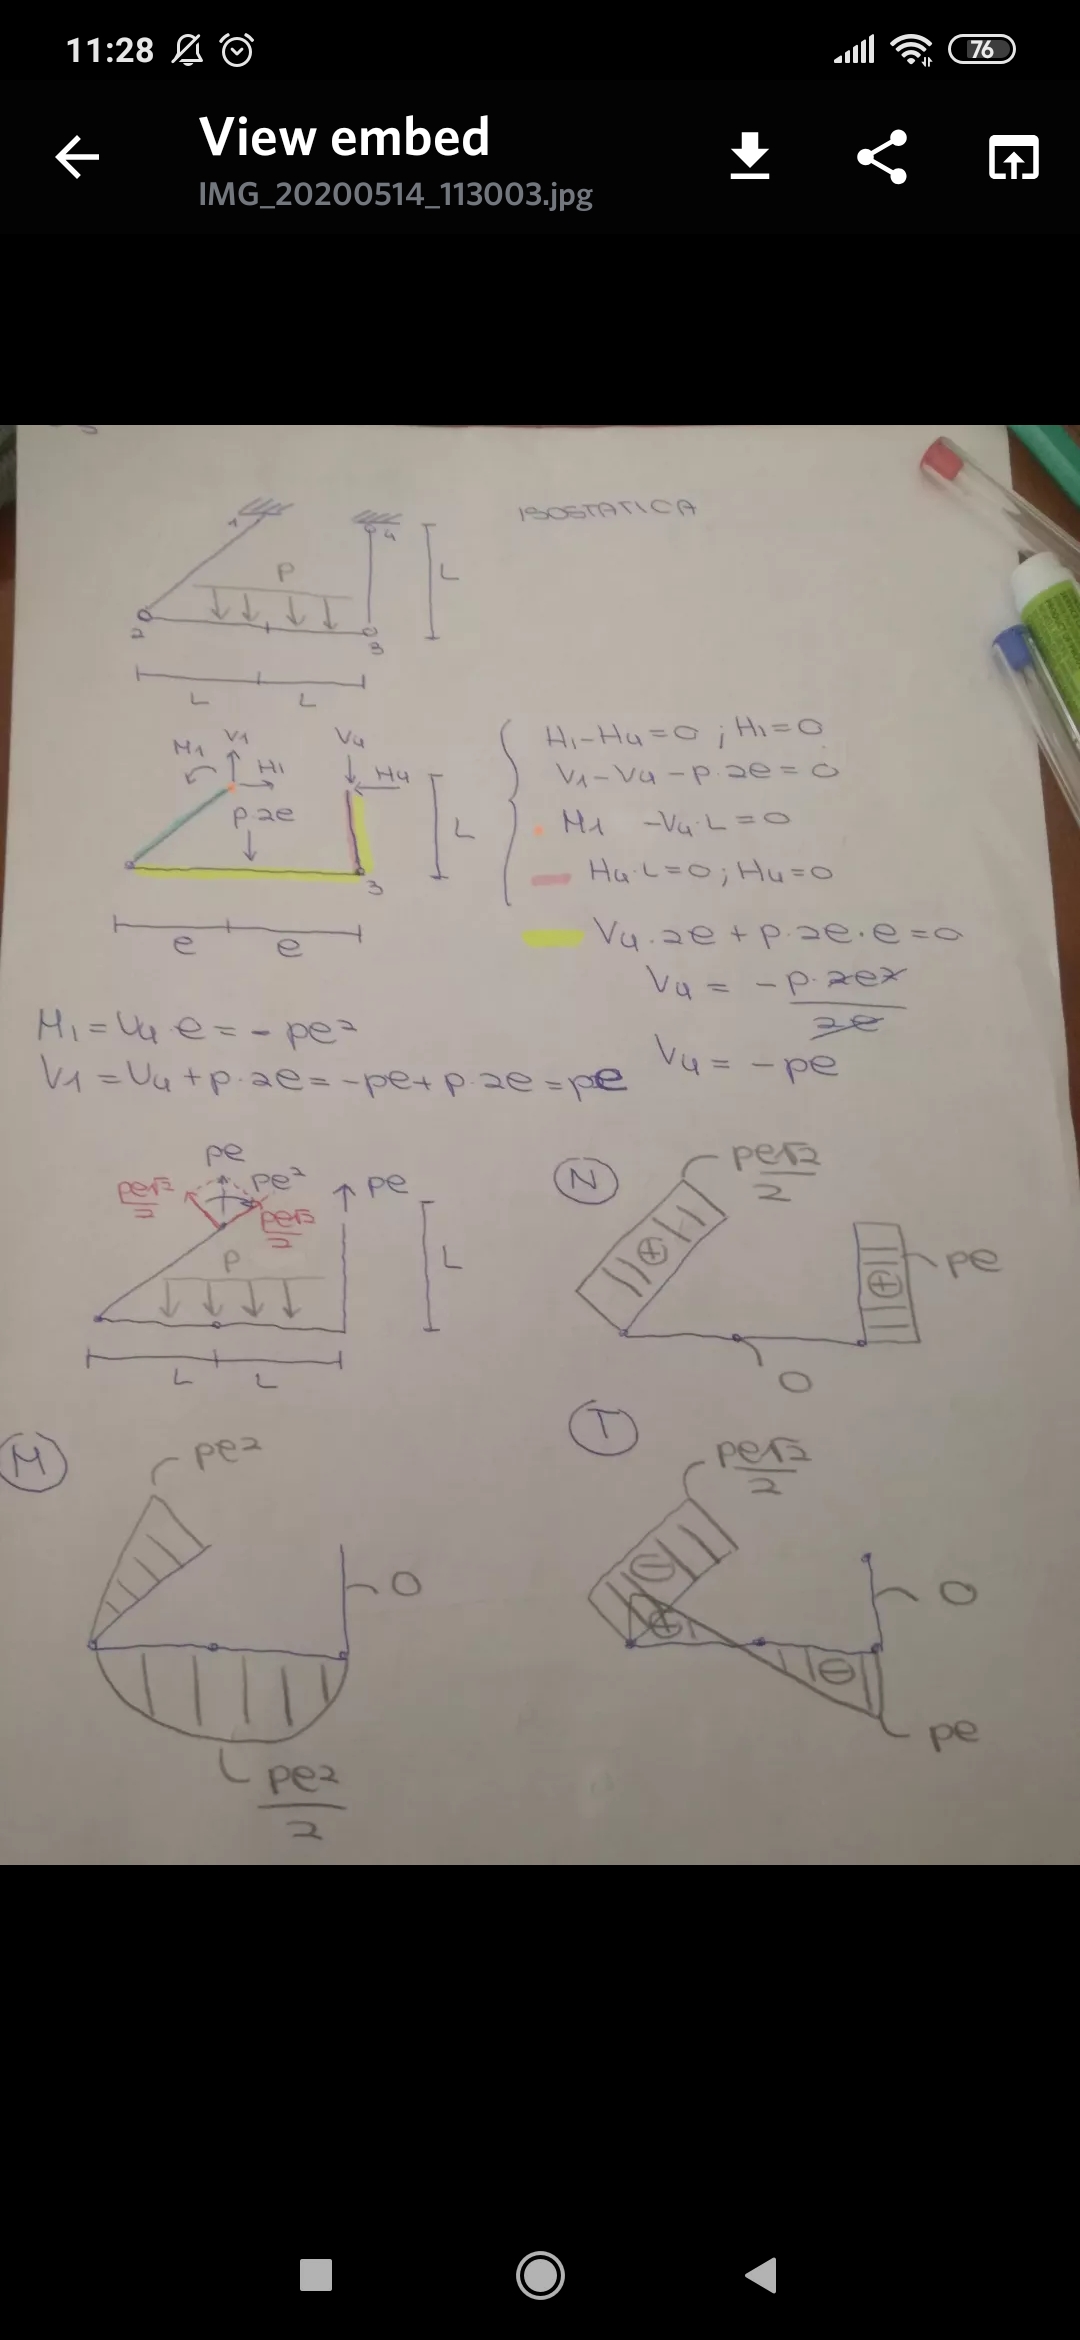 11:28
76
View embed
IMG_20200514_113003.jpg
ISOSTATICA
1
4
P
L
2
3
L L
M1 V1 H1
V4 H4
p.2e
L
3
e e
H1-H4=0 ; H1=0
V1-V4-p.2e=0
M1 -V4.L=0
H4.L=0; H4=0
V4.2e+p.2e.e=0
V4 = -p.2e2
2e
V4 = -pe
M1=V4.e=-pe2
V1=V4+p.2e=-pe+p.2e=pe
pe
pe√2
2
pe2
pe√2
2
pe
P
L
L L
N
pe√2
2
⊕
⊕
pe
0
M
pe2
0
pe2
2
T
pe√2
2
⊖
⊕
0
⊖
pe